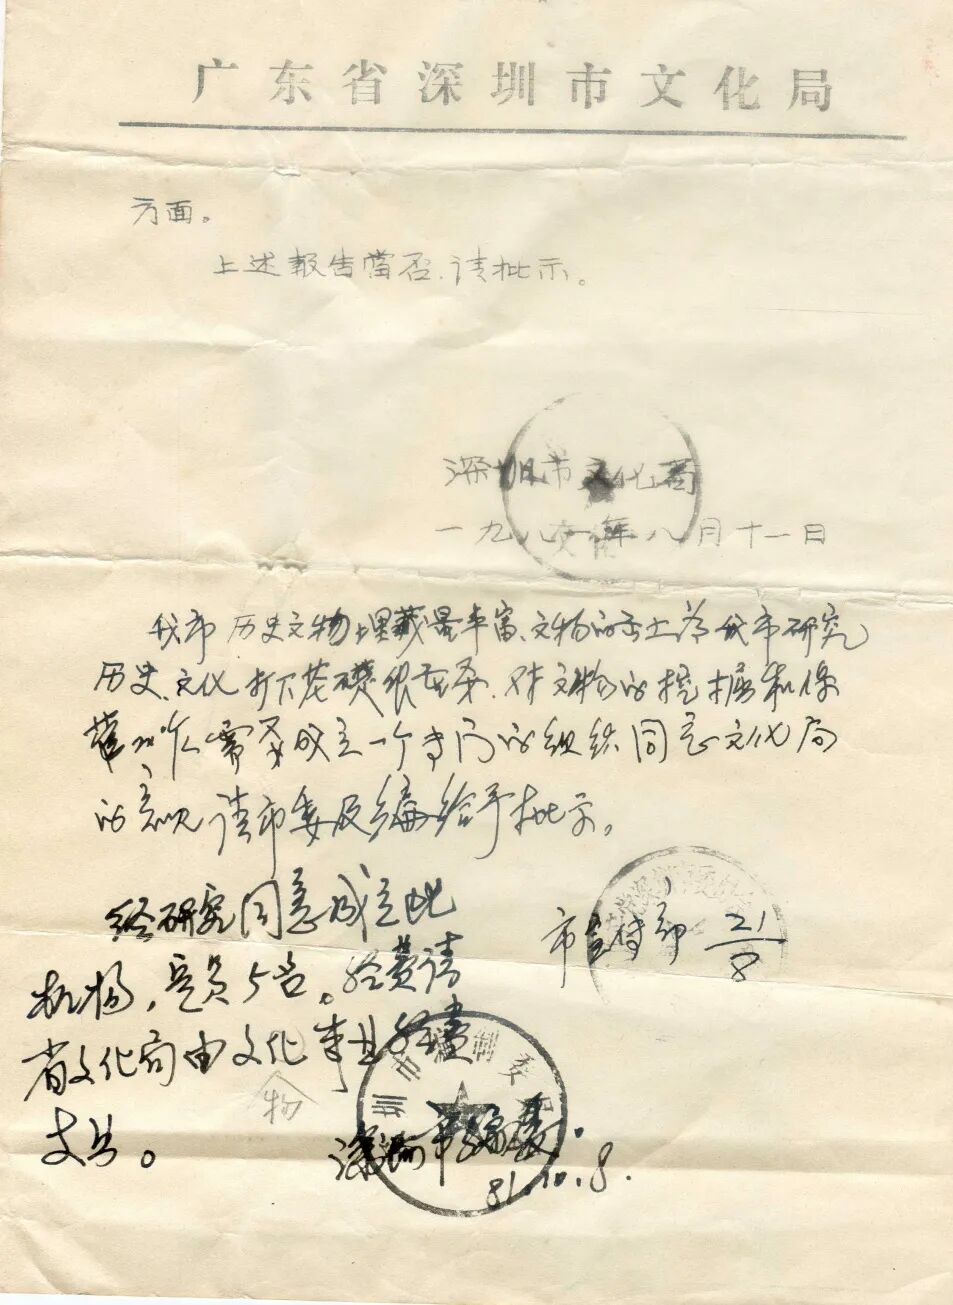 广东省深圳市文化局
方面。
上述报告当否，请批示。
深圳市文化局
一九八一年八月十一日
我市历史文物埋藏是丰富，文物的出土为我市研究
历史、文化打下基础很重要。对文物的挖掘和保
管工作需要成立一个专门的组织同意文化局
的意见请市委及编委给予批示。
市宣传部 21/8
经研究同意成立此
机构，定员5名。经费请
省文化局由文化事业经费
支出。
物
深圳市编委.
81.10.8.
圳市编制委